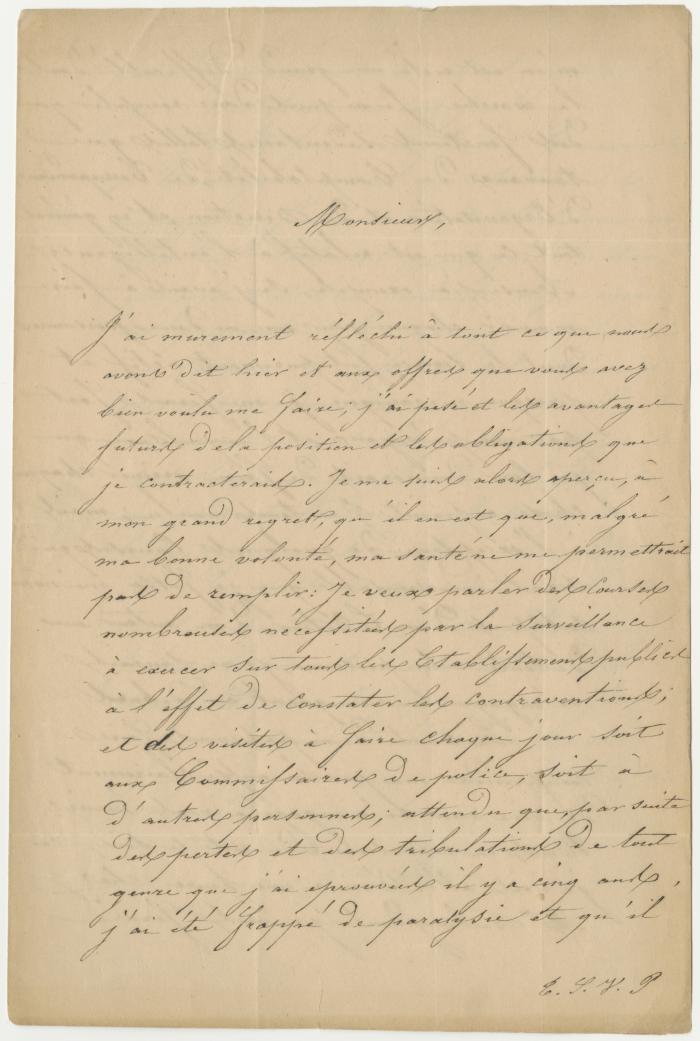 Monsieur,
J'ai murement réfléchi à tout ce que nous
avons dit hier et aux offres que vous avez
bien voulu me faire; j'ai pesé et les avantages
futurs de la position et les obligations que
je contracterais. Je me suis alors aperçu, à
mon grand regret, qu'il en est que, malgré
ma bonne volonté, ma santé ne me permettrait
pas de remplir: Je veux parler des courses
nombreuses nécessitées par la surveillance
à exercer sur tous les Etablissements publics
à l'effet de constater les contraventions;
et des visites à faire chaque jour soit
aux Commissaires de police, soit à
d'autres personnes; attendu que, par suite
des pertes et des tribulations de tout
genre que j'ai eprouvées il y a cinq ans,
j'ai été frappé de paralysie et qu'il
T. S. V. P